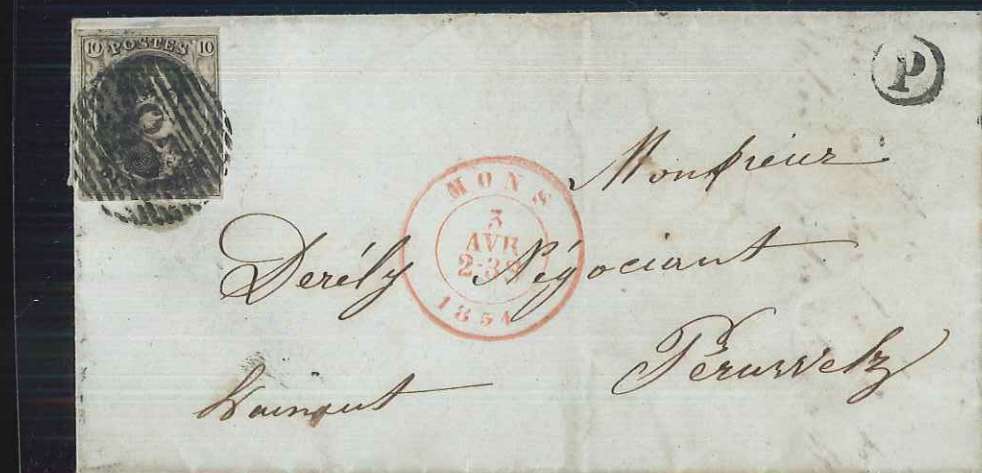 10 POSTES 10
P
MONS
3
AVR
1851
Monsieur
Derély Négociant
Péruwelz
hainaut